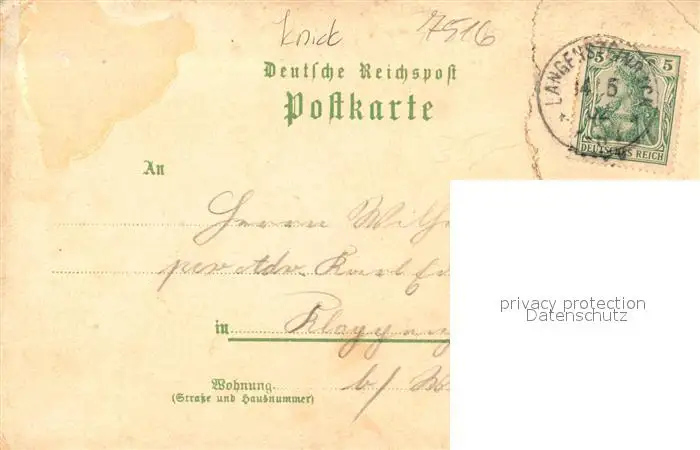 knick 7516
Deutsche Reichspost
Postkarte
5 5
14 5
02
DEUTSCHES REICH
An
Herrn Wilh
per Adr. Karl
in
b/
Wohnung
(Straße und Hausnummer)
privacy protection
Datenschutz